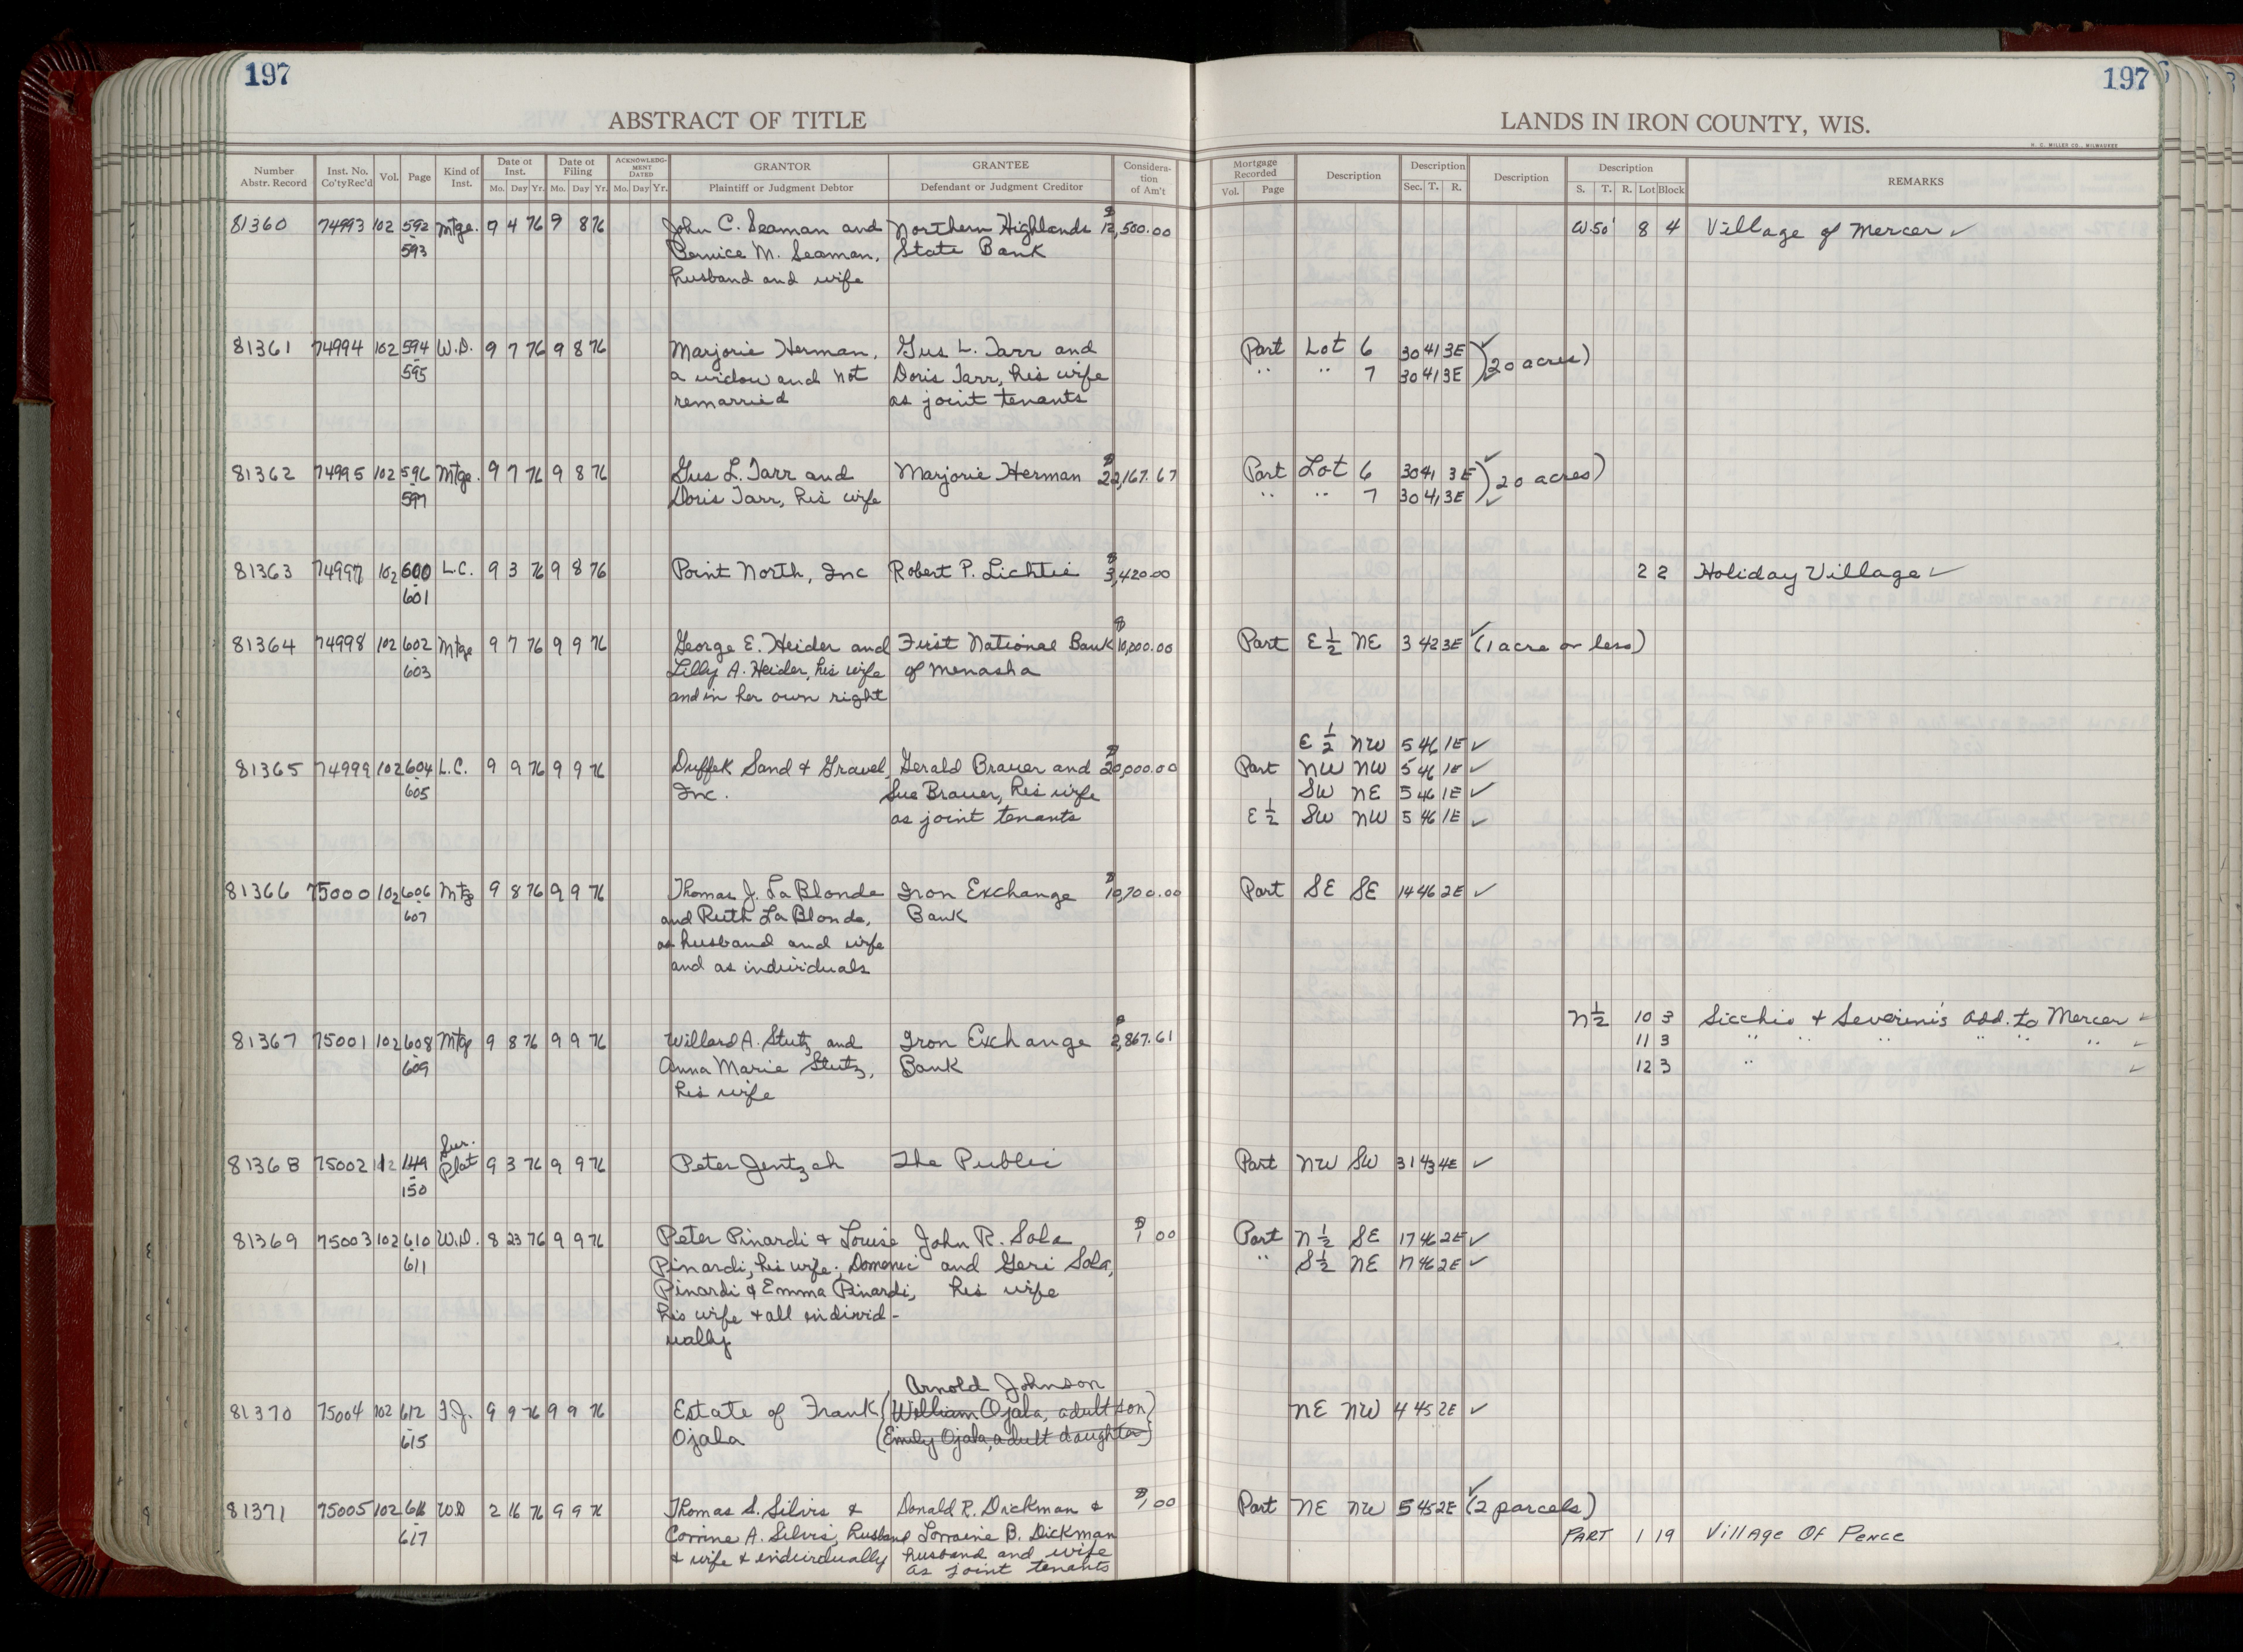 197
197
ABSTRACT OF TITLE
LANDS IN IRON COUNTY, WIS.
H. C. MILLER CO., MILWAUKEE
Number Abstr. Record Inst. No. Co'ty Rec'd Vol. Page Kind of Inst. Date of Inst. Mo. Day Yr. Date of Filing Mo. Day Yr. ACKNOWLEDGMENT DATED Mo. Day Yr. GRANTOR Plaintiff or Judgment Debtor GRANTEE Defendant or Judgment Creditor Consideration of Am't
Mortgage Recorded Vol. Page Description Description Sec. T. R. Description Description S. T. R. Lot Block REMARKS
81360 74993 102 592 Mtge. 9 4 76 9 8 76 John C. Seaman and Northern Highlands $12,500.00 W 50' 8 4 Village of Mercer ✓
593 Bernice M. Seaman, State Bank
husband and wife
81361 74994 102 594 W.D. 9 7 76 9 8 76 Marjorie Herman, Gus L. Tarr and Part Lot 6 30 41 3E ✓ (20 acres)
595 a widow and not Doris Tarr, his wife " " 7 30 41 3E
remarried as joint tenants
81362 74995 102 596 Mtge. 9 7 76 9 8 76 Gus L. Tarr and Marjorie Herman $22,167.67 Part Lot 6 30 41 3E ✓ (20 acres)
597 Doris Tarr, his wife " " 7 30 41 3E ✓
81363 74997 102 600 L.C. 9 3 76 9 8 76 Point North, Inc Robert P. Lichtie $3,420.00 2 2 Holiday Village ✓
601
81364 74998 102 602 Mtge 9 7 76 9 9 76 George E. Heider and First National Bank $10,000.00 Part E ½ NE 3 42 3E ✓ (1 acre or less)
603 Lilly A. Heider, his wife of Menasha
and in her own right
E ½ NW 5 46 1E ✓
81365 74999 102 604 L.C. 9 9 76 9 9 76 Duffek Sand & Gravel, Gerald Brauer and $20,000.00 Part NW NW 5 46 1E ✓
605 Inc. Sue Brauer, his wife SW NE 5 46 1E ✓
as joint tenants E ½ SW NW 5 46 1E ✓
81366 75000 102 606 Mtg 9 8 76 9 9 76 Thomas J. LaBlonde Iron Exchange $10,700.00 Part SE SE 14 46 2E ✓
607 and Ruth LaBlonde, Bank
as husband and wife
and as individuals
N ½ 10 3 Sicchio & Severini's add. to Mercer ✓
81367 75001 102 608 Mtg 9 8 76 9 9 76 Willard A. Stutz and Iron Exchange $2,867.61 11 3 " " " " " " ✓
609 Anna Marie Stutz, Bank 12 3 " ✓
his wife
Sur.
81368 75002 112 149 Plat 9 3 76 9 9 76 Peter Jentzsch The Public Part NW SW 31 43 4E ✓
150
81369 75003 102 610 W.D. 8 23 76 9 9 76 Peter Pinardi & Louise John R. Sola $1 00 Part N ½ SE 17 46 2E ✓
611 Pinardi, his wife; Domenic and Geri Sola, " S ½ NE 17 46 2E ✓
Pinardi & Emma Pinardi, his wife
his wife & all individ-
ually
Arnold Johnson
81370 75004 102 612 F.J. 9 9 76 9 9 76 Estate of Frank (William Ojala, adult son) NE NW 4 45 2E ✓
615 Ojala (Emily Ojala, adult daughter)
81371 75005 102 616 W.D 2 16 76 9 9 76 Thomas S. Silvis & Donald R. Dickman & $1 00 Part NE NW 5 45 2E ✓ (2 parcels)
617 Corrine A. Silvis, husband Lorraine B. Dickman PART 1 19 Village OF Pence
& wife & individually husband and wife
as joint tenants